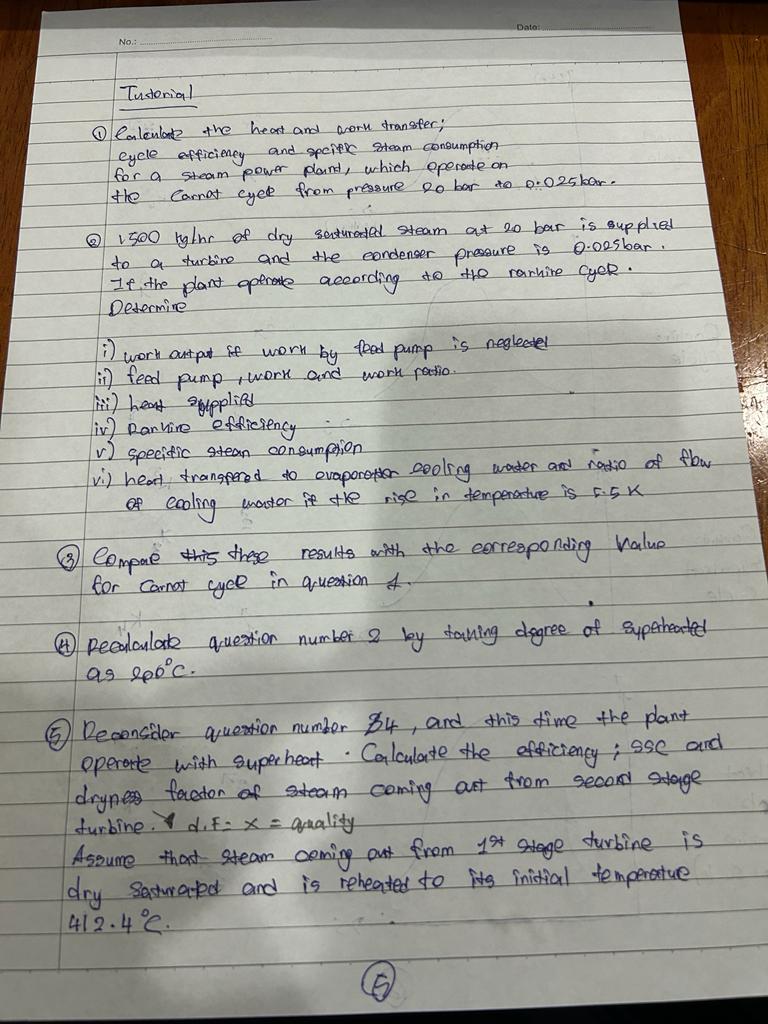 No.:
Date:
Tustorial
① Calculate the heat and work transfer;
cycle efficiency and spcific steam consumption
for a steam power pland, which operate on
the Carnot cycle from pressure 20 bar to 0.025bar.
② 1500 kg/hr of dry saturated steam at 20 bar is supplied
to a turbine and the condenser pressure is 0.025bar.
If the plant operate according to the rankine cycle.
Determine
i) work output if work by feed pump is neglected
ii) feed pump, work and work ratio.
iii) heat supplied
iv) Rankine efficiency
v) specific steam consumption
vi) heat transfered to evaporator cooling water and ratio of flow
of cooling water if the rise in temperature is 5.5 K
③ Compare this these results with the corresponding Value
for Carnot cycle in question 1.
④ Recalculate question number 2 by taking degree of superheated
as 200°C.
⑤ Reconsider question number 4, and this time the plant
operate with superheat. Calculate the efficiency; SSC and
dryness factor of steam coming out from second stage
turbine. d.F = x = quality
Assume that steam coming out from 1st stage turbine is
dry saturated and is reheated to its initial temperature
412.4°C.
⑤